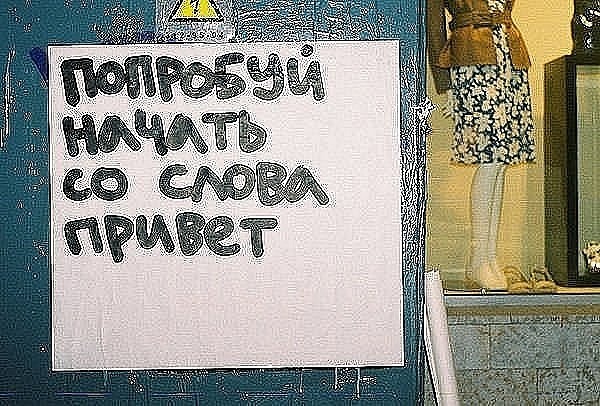 ПОПРОБУЙ
НАЧАТЬ
СО СЛОВА
ПРИВЕТ